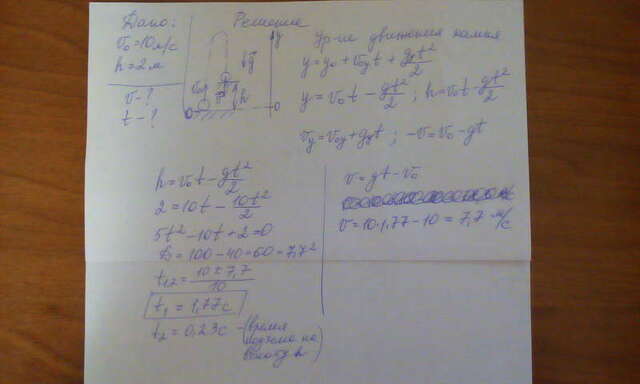 Дано:
v₀=10м/с
h=2м
v-?
t-?
Решение
y
v₀
h
0
0
Ур-ие движения камня
y=y₀+v₀yt+gyt²/2
y=v₀t-gt²/2; h=v₀t-gt²/2
vy=v₀y+gyt; -v=v₀-gt
h=v₀t-gt²/2
2=10t-10t²/2
5t²-10t+2=0
=100-40=60=7,7²
t₁,₂=10±7,7/10
t₁=1,77с
t₂=0,23с -(время
подъема на
высоту h)
v=gt-v₀
v=10·1,77-10=7,7 м/с